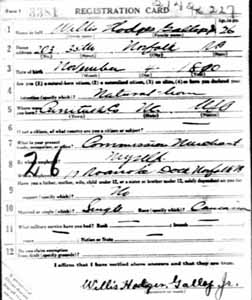 Form 1
REGISTRATION CARD
1 Name in full Willis Hodges Jr 26
2 Home address 703 Norfolk Va
3 Date of birth November 1890
4 Are you (1) a natural-born citizen, (2) a naturalized citizen, (3) an alien, (4) or have you declared your intention (specify which)? Natural-born
5 Where were you born? Currituck Co. Nc. USA
6 If not a citizen, of what country are you a citizen or subject?
7 What is your present trade, occupation, or office? Commission Merchant
8 By whom employed? Myself
Where employed? 17 Roanoke Dock Norfolk Va
9 Have you a father, mother, wife, child under 12, or a sister or brother under 12, solely dependent on you for support (specify which)? No
10 Married or single (which)? Single Race (specify which)? Caucasian
11 What military service have you had? Rank
years Nation or State
12 Do you claim exemption from draft (specify grounds)?
I affirm that I have verified above answers and that they are true.
Willis Hodges Gallop Jr.
26